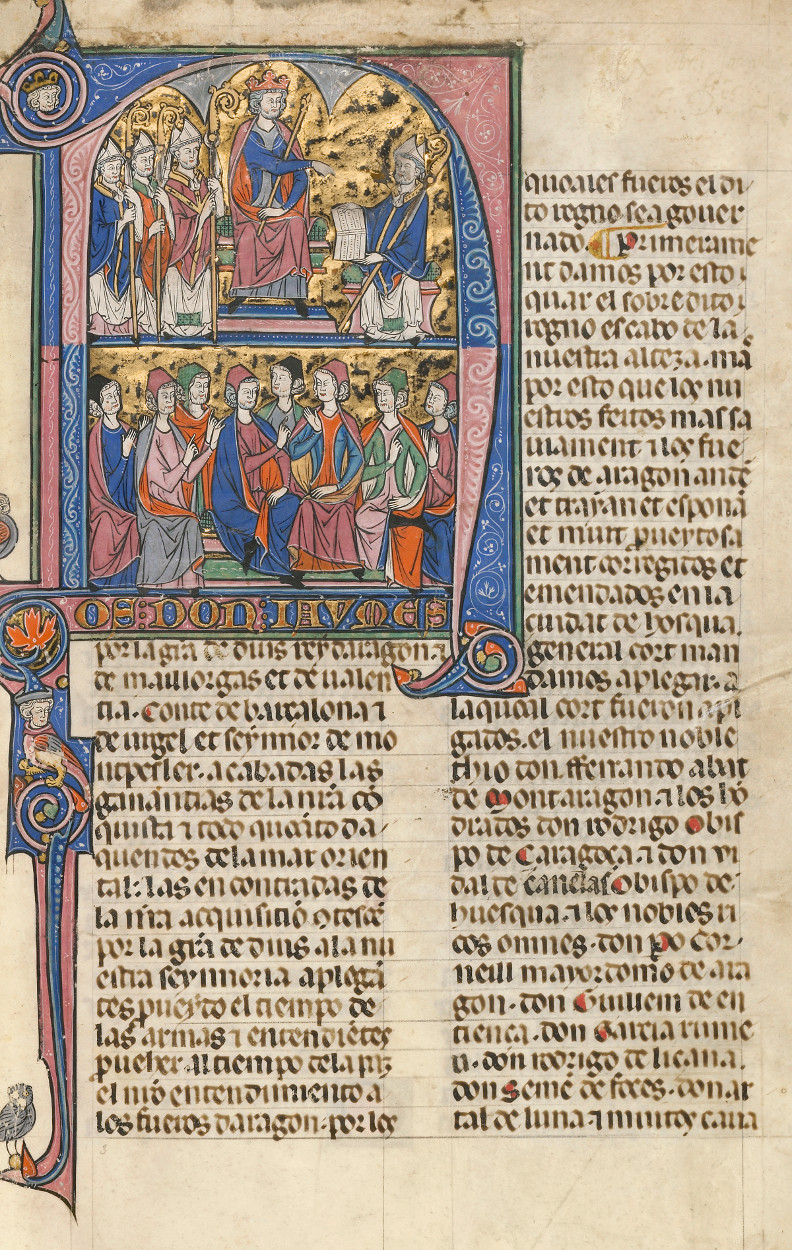 OS: DON: IAVMES
por la gra de dius rey daragon ⁊
de mallorgas et de ualen
cia. Conte de barçalona ⁊
de urgel et seynnor de mo
ntpesler. acabadas las
ganancias de la nra co
quista ⁊ todo quanto da
quendes de la mar orien
tal: las encontradas de
la nra acquisitio
por la gra de dius a la nu
estra seynnoria aplega
des puesto el tiempo de
las armas ⁊ entendietes
prueher al tiempo de la paz
el nro entendimiento a
los fueros daragon. por los
quoales fueros el di
to regno sea gouer
nado. Primerame
nt damos por esto
quar el sobredito
regno es cabo de la
nuestra alteza. ma
por esto que los nu
estros feitos mas sa
uiament ⁊ los fue
ros de aragon ante
et trayan et espona
et muit
ment corregidos et
emendados en la
ciudat de hosqua.
general cort man
damos aplegar. a
la quoal cort fueron apl
gados. el nuestro noble
thio don fferrando abat
de Montaragon. ⁊ los ho
drados don rodrigo Obis
po de Caragoça. ⁊ don vi
dal de canellas Obispo de
huesqua. ⁊ los nobles ri
cos omnes. don Po Cor
neill mayordomo de ara
gon. don Guillem de en
tienca. don Garcia rume
u. don rodrigo de liçana.
don Seme de foces. don ar
tal de luna. ⁊ muitos caua